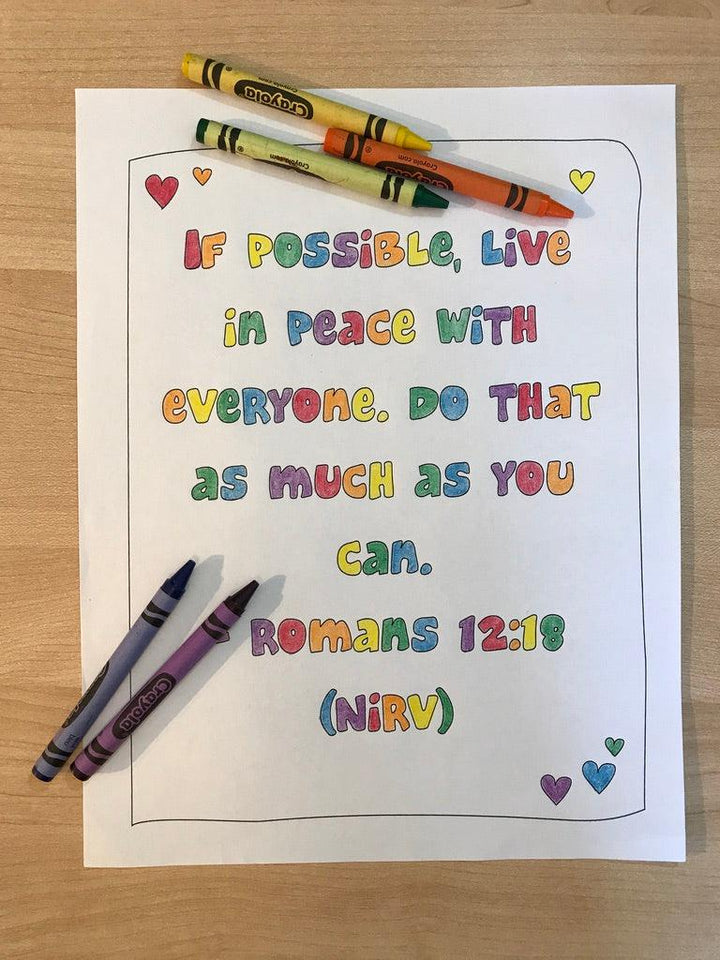 Crayola
Crayola.com
Crayola
Crayola.com
IF POSSiBLe, Live
in Peace WiTH
everyone. DO THaT
as MUCH as YOU
can.
Romans 12:18
(NiRV)
Crayola